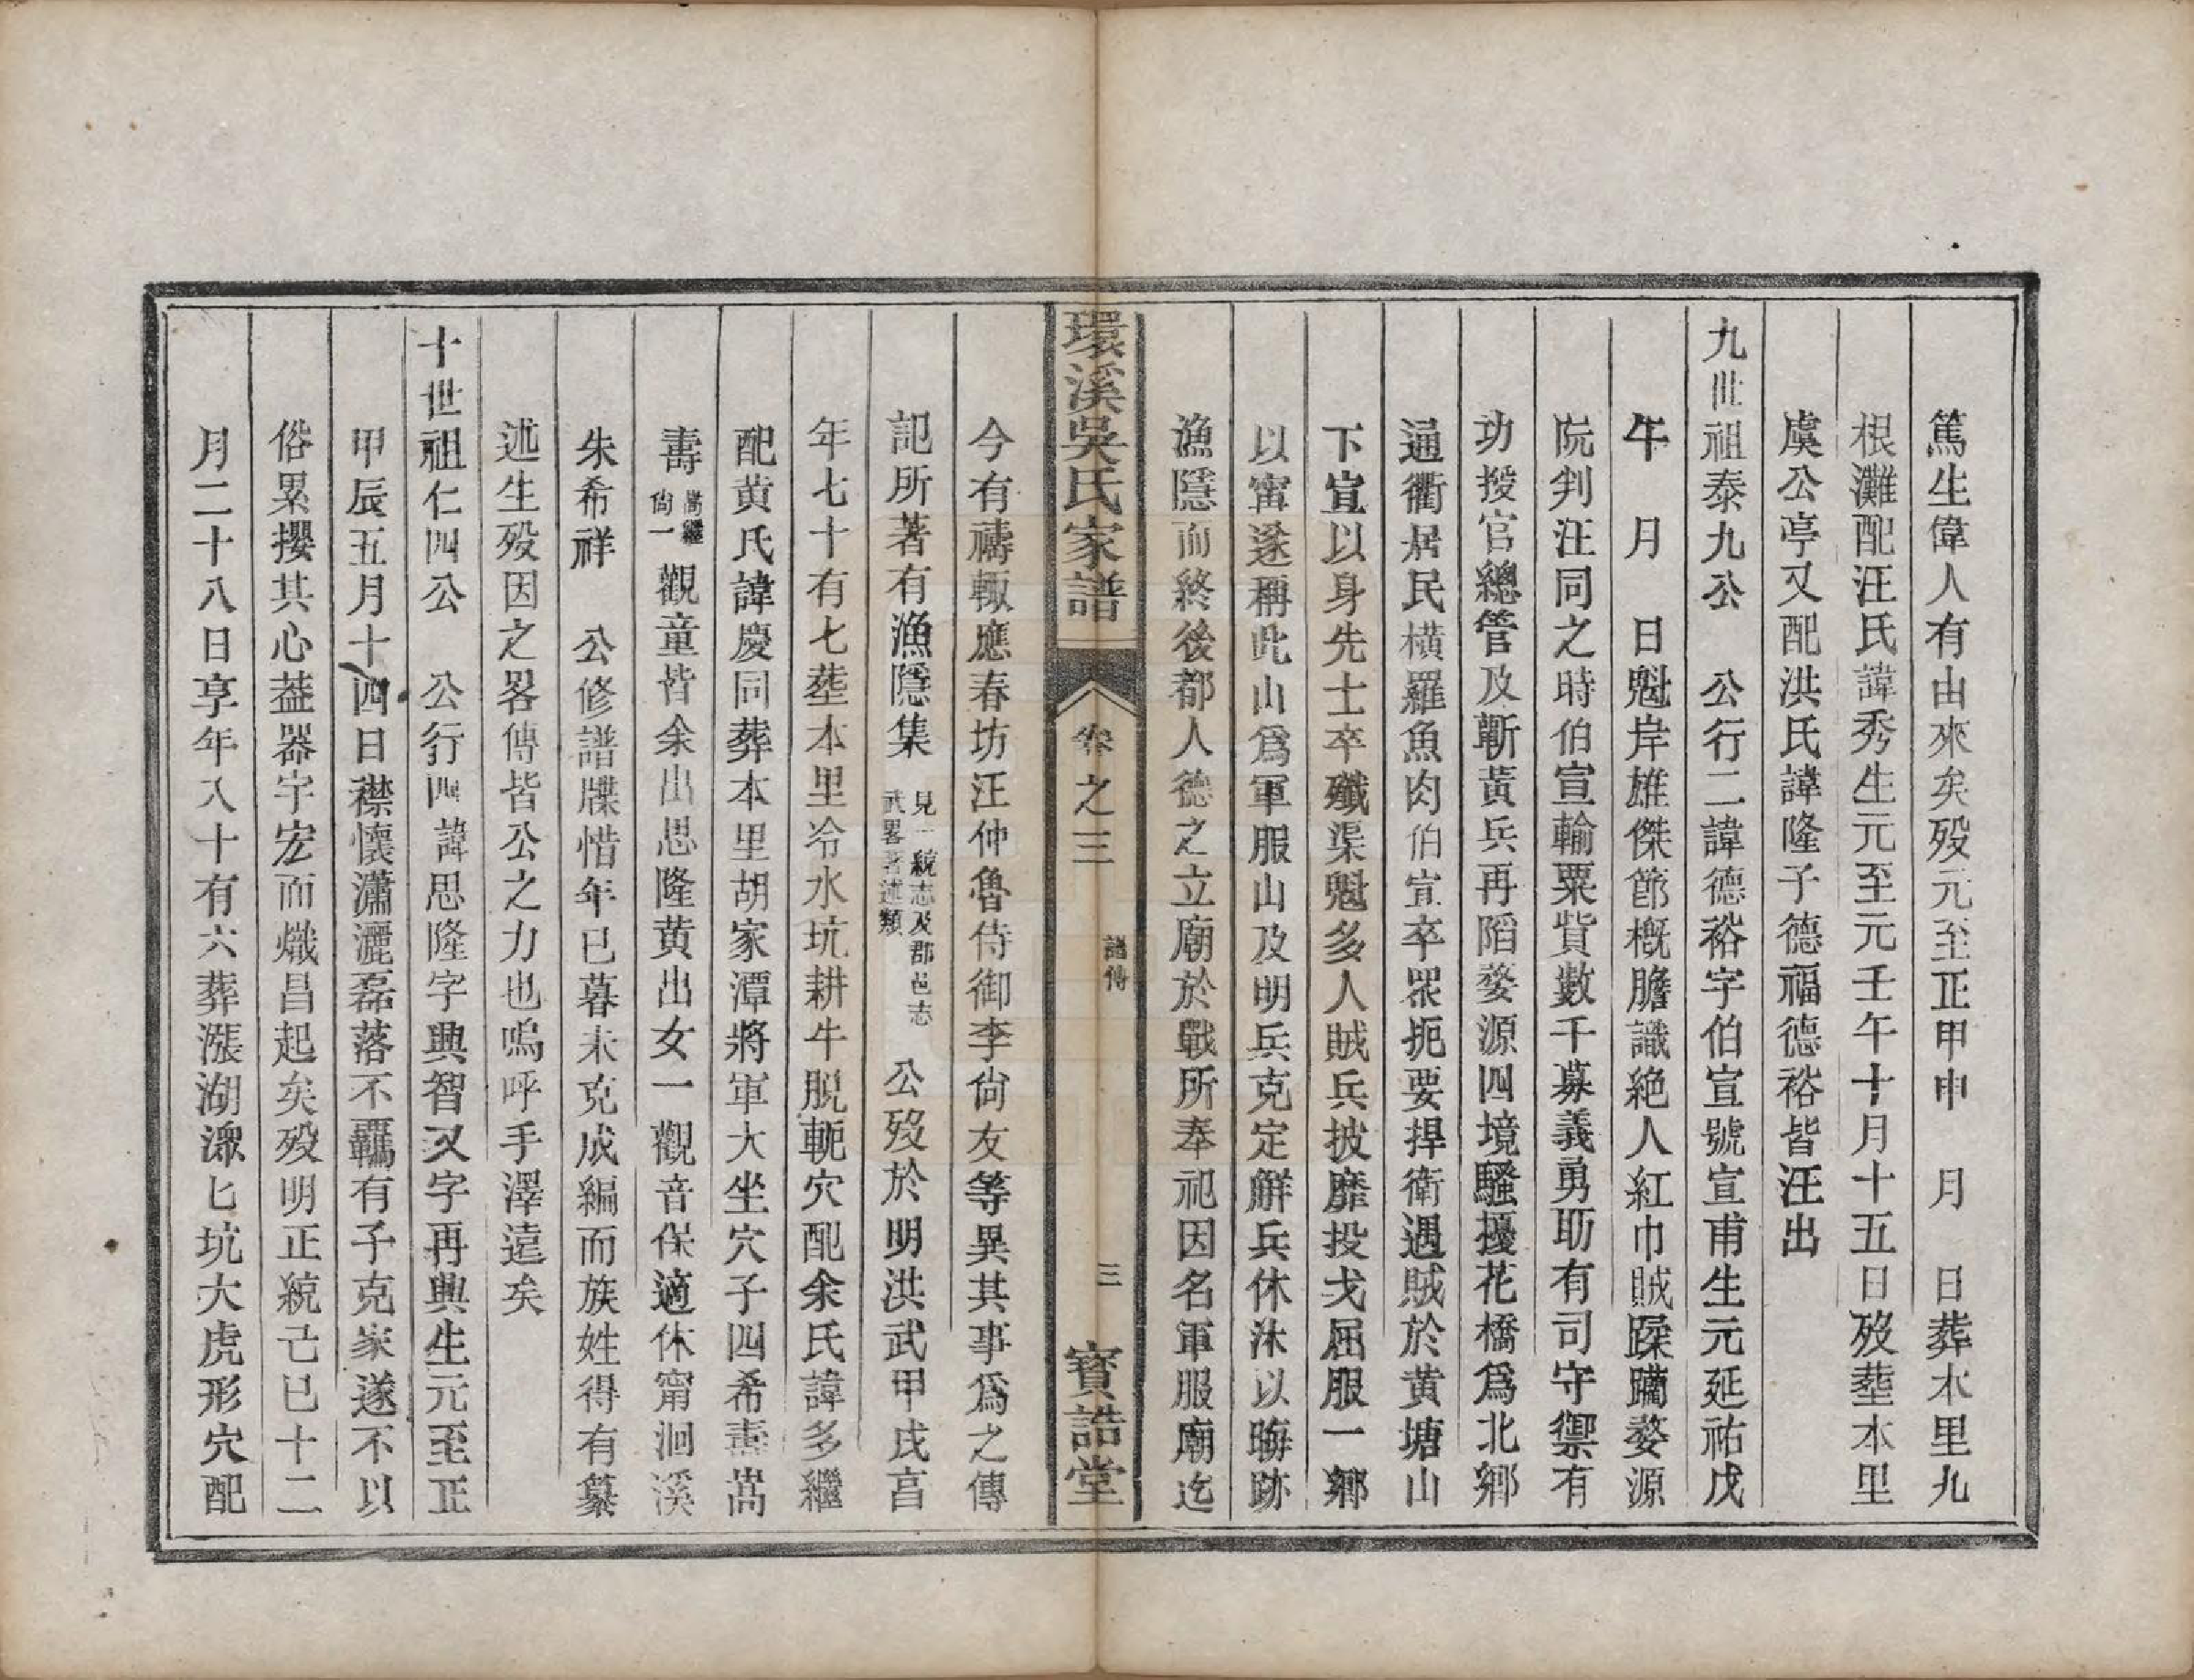 篤生偉人有由來矣歿元至正甲申　月　日葬本里九
根灘配汪氏諱秀生元至元壬午十月十五日歿塟本里
虞公亭又配洪氏諱隆子德福德裕皆汪出
九世祖泰九公　公行二諱德裕字伯宣號宣甫生元延祐戊
午　月　日魁岸雄傑節概膽識絶人紅巾賊蹂躪婺源
阮判汪同之時伯宣輸粟貲數千募義勇助有司守禦有
功授官總管及蘄黃兵再陷婺源四境騷擾花橋爲北鄉
通衢居民橫羅魚肉伯宣卒眾扼要捍衛遇賊於黄塘山
下宣以身先士卒殲渠魁多人賊兵披靡投戈屈服一鄉
以甯遂稱此山爲軍服山及明兵克定解兵休沐以晦跡
漁隱而終後都人德之立廟於戰所奉祀因名軍服廟迄
環溪吳氏家譜　卷之三　諸傳　三　寳誥堂
今有禱輒應春坊汪仲魯侍御李尙友等異其事爲之傳
記所著有漁隱集　見一統志及郡邑志武畧著述類　公歿於明洪武甲戌亯
年七十有七塟本里冷水坑耕牛脱軛穴配余氏諱多繼
配黄氏諱慶同葬本里胡家潭將軍大坐穴子四希壽嵩
壽嵩繼尙一觀童皆余出思隆黄出女一觀音保適休甯洄溪
朱希祥　公修譜牒惜年已暮未克成編而族姓得有纂
述生歿因之畧傳皆公之力也嗚呼手澤遠矣
十世祖仁四公　公行四諱思隆字興智又字再興生元至正
甲辰五月十四日襟懷瀟灑磊落不羈有子克家遂不以
俗累攖其心葢器宇宏而熾昌起矣歿明正統己巳十二
月二十八日享年八十有六葬漲湖潨匕坑大虎形穴配